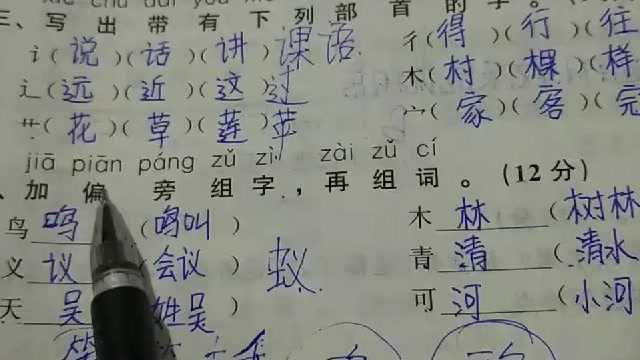 三、写出带有下列部首的字。
讠(说)(话)(讲)课语 彳(得)(行)(往
辶(远)(近)(这)过 木(村)(棵)(样
艹(花)(草)(莲)苹 宀(家)(客)(完
jiā piān páng zǔ zì zài zǔ cí
、加偏旁组字,再组词。(12分)
鸟 鸣 (鸣叫) 木 林 (树林
义 议 (会议) 蚁 青 清 (清水
天 吴 姓吴) 可 河 (小河